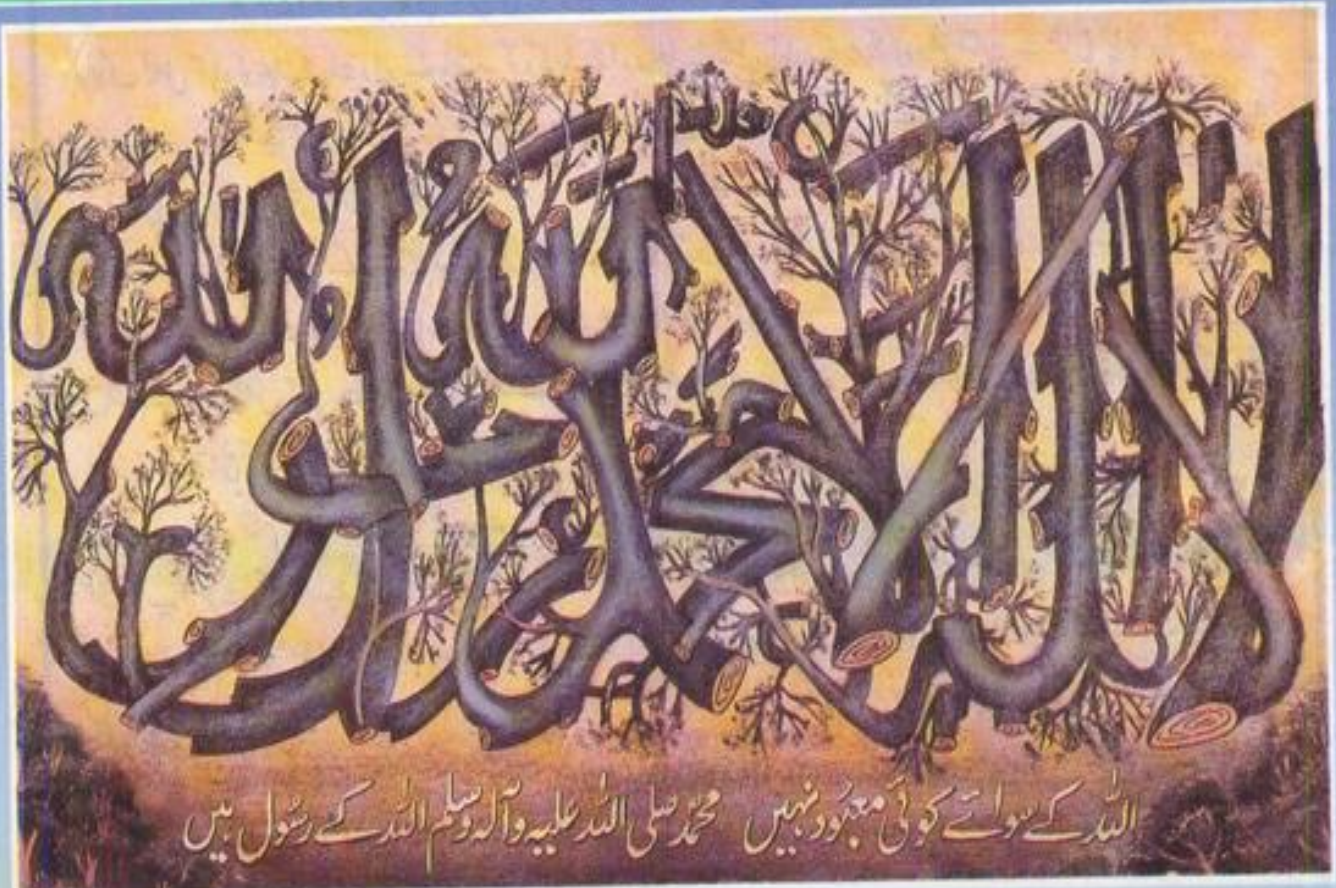 لا إله إلا الله محمد رسول الله
اللہ کے سوائے کوئی معبود نہیں محمد صلی اللہ علیہ وآلہ وسلم اللہ کے رسول ہیں